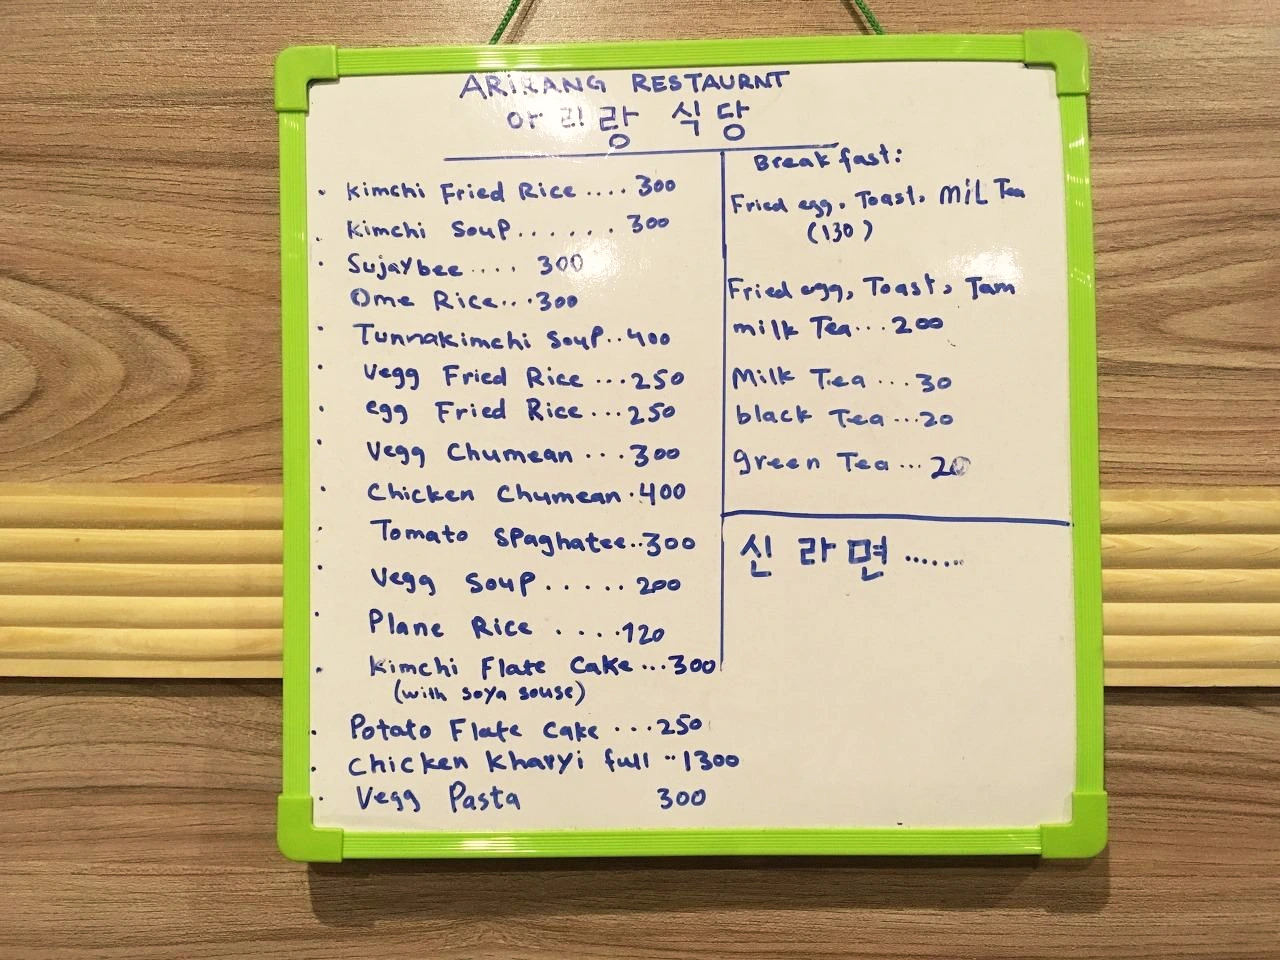 ARIRANG RESTAURNT
아리랑 식당
Kimchi Fried Rice .... 300
Kimchi Soup...... 300
Sujaybee .... 300
Ome Rice...300
Tunnakimchi Soup..400
Vegg Fried Rice ...250
egg Fried Rice...250
Vegg Chumean ...300
Chicken Chumean.400
Tomato Spaghatee..300
Vegg Soup ..... 200
Plane Rice ....120
Kimchi Flate Cake ...300
(with soya souse)
Potato Flate Cake ...250
Chicken Kharyi full ..1300
Vegg Pasta 300
Breakfast:
Fried egg, Toast, MiL Tea
(130)
Fried egg, Toast, Jam
milk Tea...200
Milk Tea ...30
black Tea ...20
green Tea ...20
신라면 .......